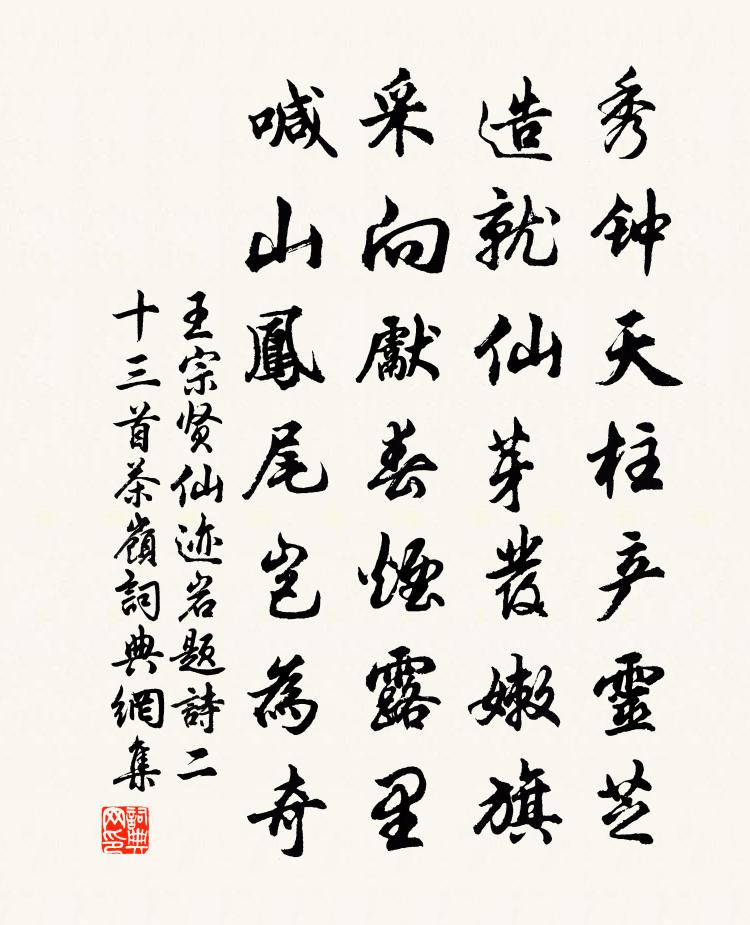 秀钟天柱产靈芝
造就仙芽發嫩旗
采向獻春煙露里
喊山鳳尾岂為奇
王宗贤仙迹岩题詩二
十三首茶嶺詞典網集
詞典
网印